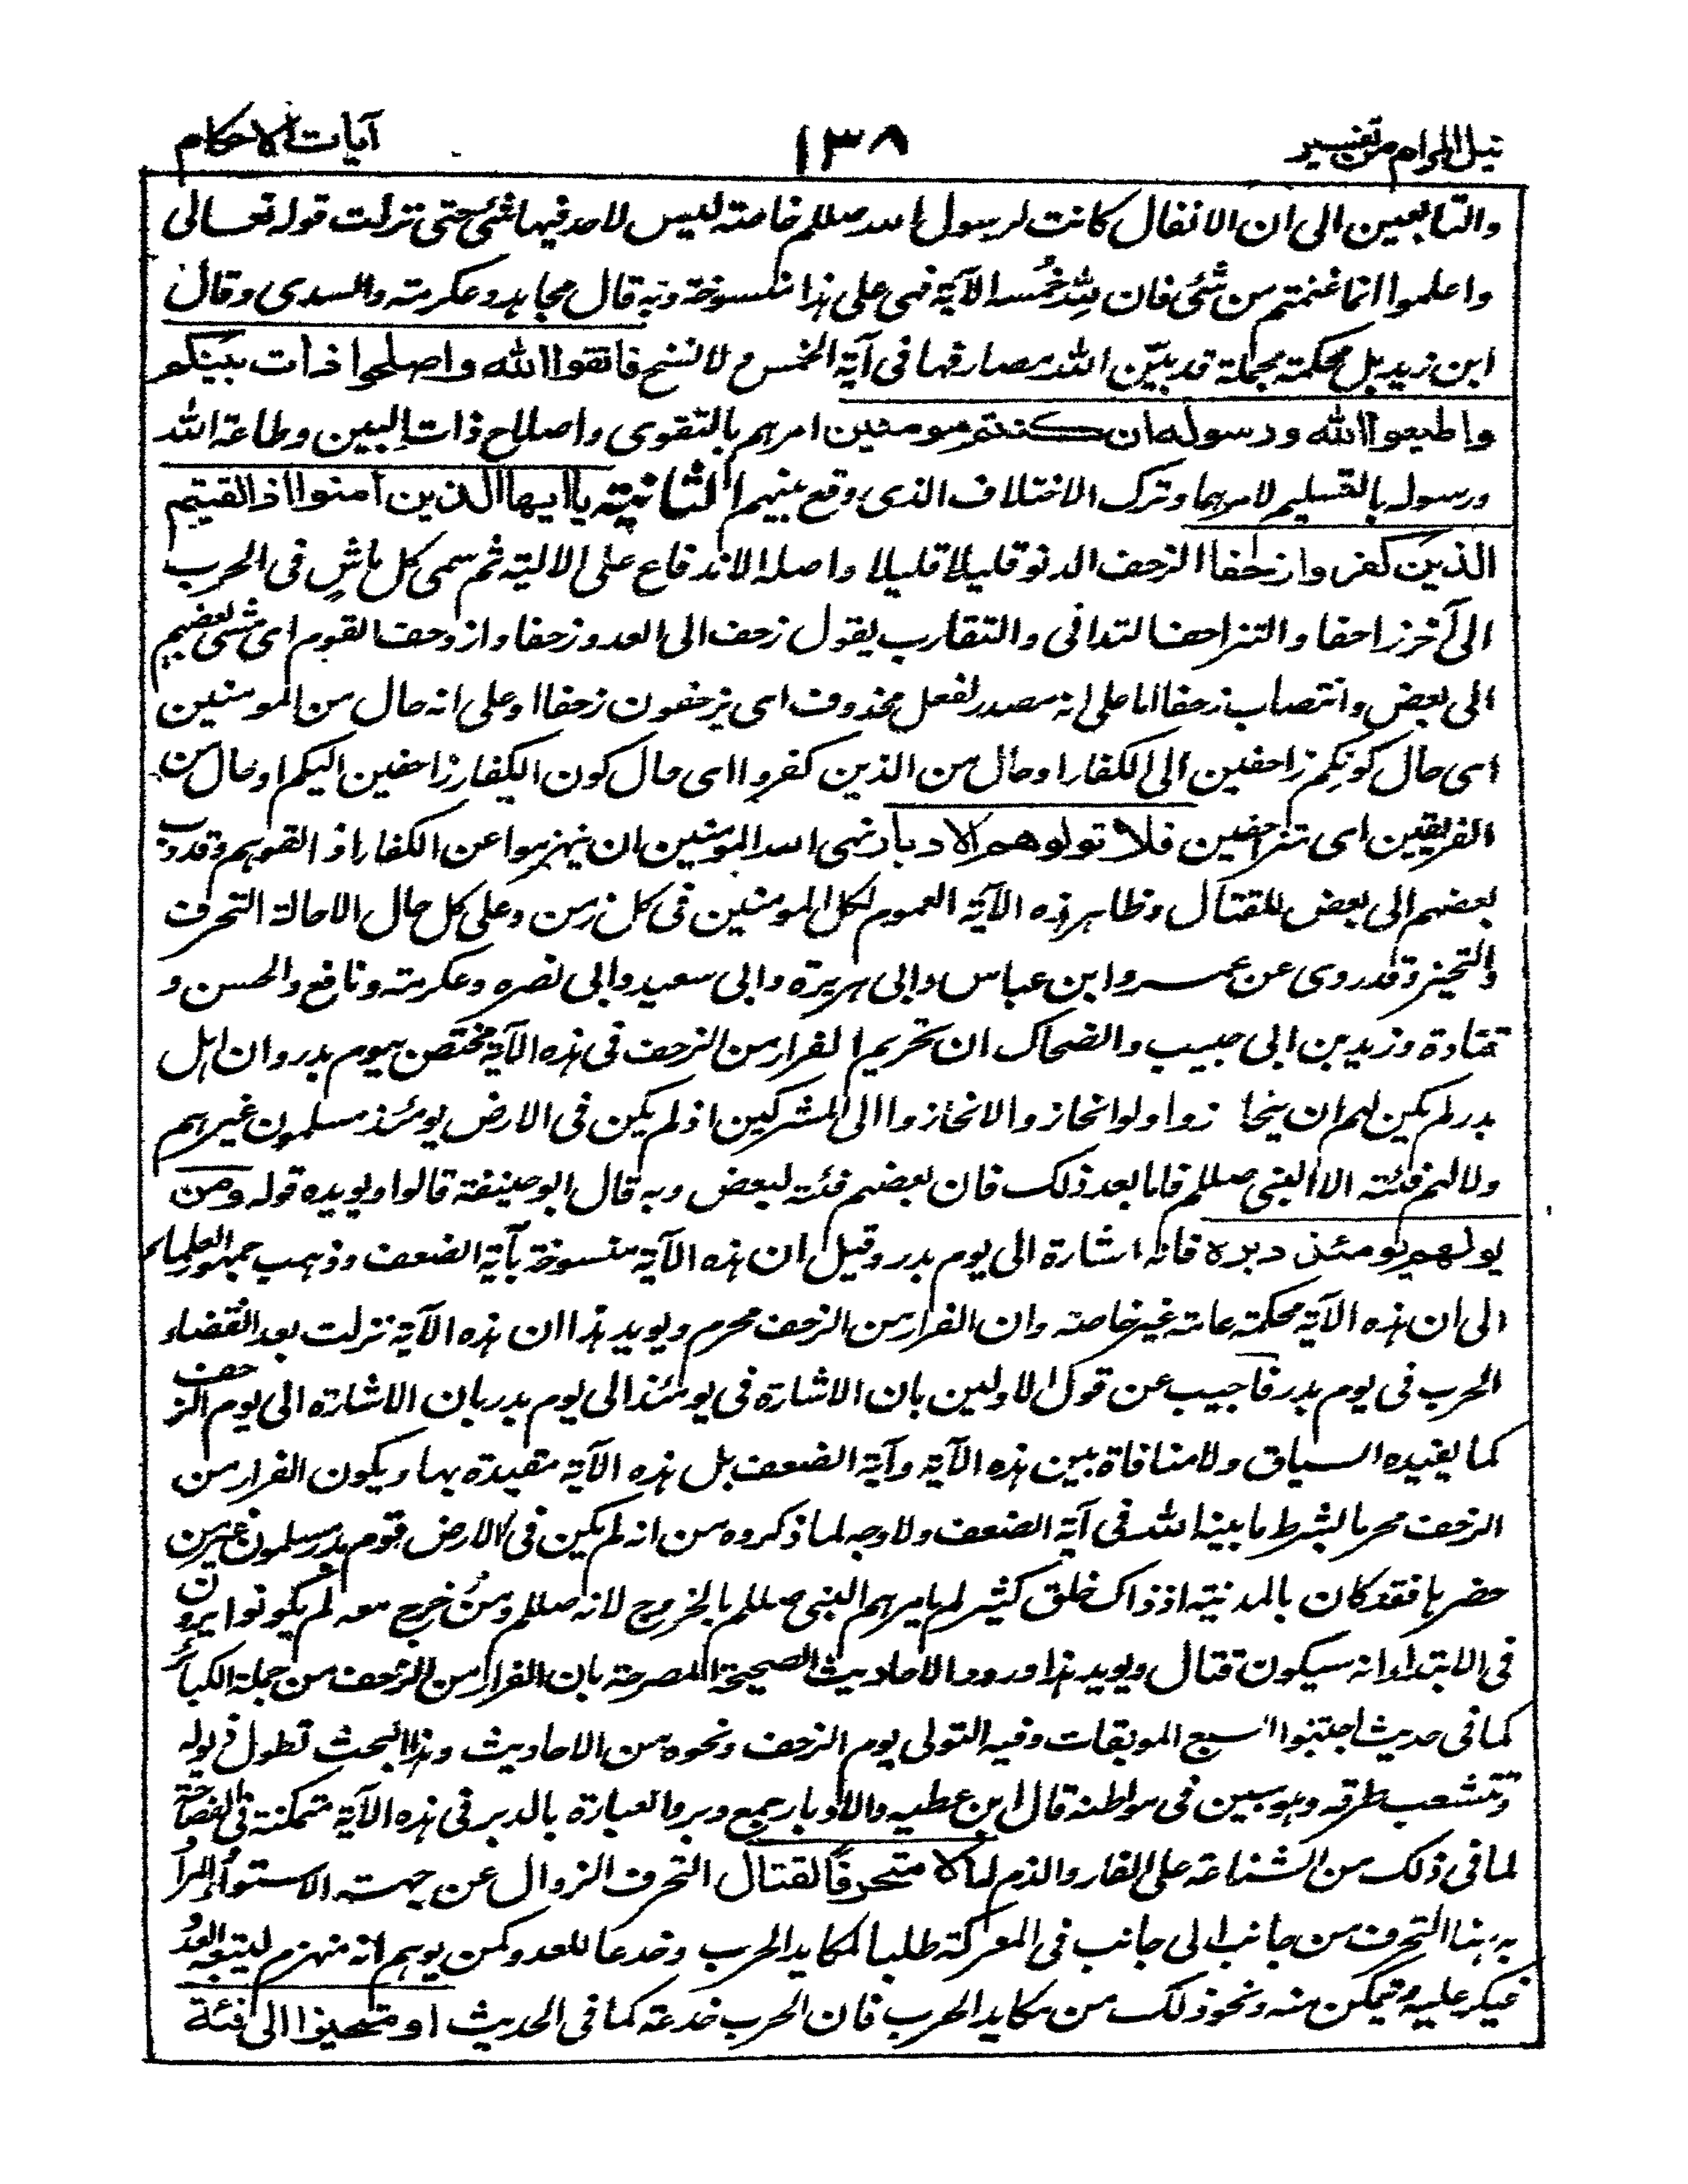 نيل المرام من تفسير ١٣٨ آيات الاحكام
والتابعين الى ان الانفال كانت لرسول الله صللم خاصته ليس لاحد فيها شئ حتى نزلت قوله تعالى
واعلموا انما غنمتم من شئ فان لله خمسه الآية فهى على هذا منسوخة وبه قال مجاهد وعكرمته والسدى وقال
ابن زيد بل محكمته مجملة قد بيّن الله مصارفها فى آية الخمس ولا نسخ فاتقوا الله واصلحوا ذات بينكم
واطيعوا الله ورسوله ان كنتم مومنين امرهم بالتقوى واصلاح ذات البين وطاعة الله
ورسوله بالتسليم لامرهما وترك الاختلاف الذى وقع بينهم الثانيته يا ايها الذين آمنوا اذا لقيتم
الذين كفروا زحفا الزحف الدنو قليلا قليلا واصله الاندفاع على الالية ثم سمى كل ماشٍ فى الحرب
الى آخر زاحفا والتزاحف التدانى والتقارب يقول زحف الى العدو زحفا وازدحف القوم اى مشى بعضهم
الى بعض وانتصاب زحفا اما على انه مصدر لفعل محذوف اى يزحفون زحفا او على انه حال من المومنين
اى حال كونكم زاحفين الى الكفار او حال من الذين كفروا اى حال كون الكفار زاحفين اليكم او حال من
الفريقين اى متزاحفين فلا تولوهم الادبار نهى الله المومنين ان ينهزموا عن الكفار اذا لقوهم وقد دب
بعضهم الى بعض للقتال وظاهر هذه الآية العموم لكل المومنين فى كل زمن وعلى كل حال الا حالة التحرف
والتحيز وقد روى عن عمر وابن عباس وابى هريرة وابى سعيد وابى نضره وعكرمته ونافع والحسن و
قتادة وزيد بن ابى حبيب والضحاك ان تحريم الفرار من الزحف فى هذه الآية مختص بيوم بدر وان اهل
بدر لم يكن لهم ان ينحازوا ولو انحازوا لانحازوا الى المشركين اذ لم يكن فى الارض يومئذ مسلمون غيرهم
ولا لهم فئته الا النبى صللم فاما بعد ذلك فان بعضهم فئته لبعض وبه قال ابو حنيفته قالوا ويويده قوله ومن
يولهم يومئذ دبره فانه اشارة الى يوم بدر وقيل ان هذه الآية منسوخة بآية الضعف وذهب جمهور العلماء
الى ان هذه الآية محكمته عامته غير خاصته وان الفرار من الزحف محرم ويويد هذا ان هذه الآية نزلت بعد انقضاء
الحرب فى يوم بدر فاجيب عن قول الاولين بان الاشارة فى يومئذ الى يوم بدر بان الاشارة الى يوم الزحف
كما يفيده السياق ولا منافاة بين هذه الآية وآية الضعف بل هذه الآية مقيدة بها ويكون الفرار من
الزحف محرما بشرط ما بينه الله فى آية الضعف ولا وجه لما ذكروه من انه لم يكن فى الارض يوم بدر مسلمون غير من
حضرها فقد كان بالمدينته اذ ذاك خلق كثير لم يامرهم النبى صللم بالخروج لانه صللم ومن خرج معه لم يكونوا يرون
فى الابتداء انه سيكون قتال ويويد هذا ورود الاحاديث الصحيحة المصرحة بان الفرار من الزحف من جملة الكبائر
كما فى حديث اجتنبوا السبع الموبقات وفيه التولى يوم الزحف ونحوه من الاحاديث وهذا البحث تطول ذيوله
وتتشعب طرقه وهو مبين فى مواطنه قال ابن عطيه والادبار جمع دبر والعبارة بالدبر فى هذه الآية متمكنة فى الفصاحة
لما فى ذلك من الشناعة على الفار والذم له الا متحرفا لقتال التحرف الزوال عن جهته الاستواء والمراد
به هنا التحرف من جانب الى جانب فى المعركة طلبا لمكايد الحرب وخدعا للعدو وكمن يوهم انه منهزم ليتبعه العدو
فيكر عليه ويتمكن منه ونحو ذلك من مكايد الحرب فان الحرب خدعة كما فى الحديث او متحيزا الى فئة